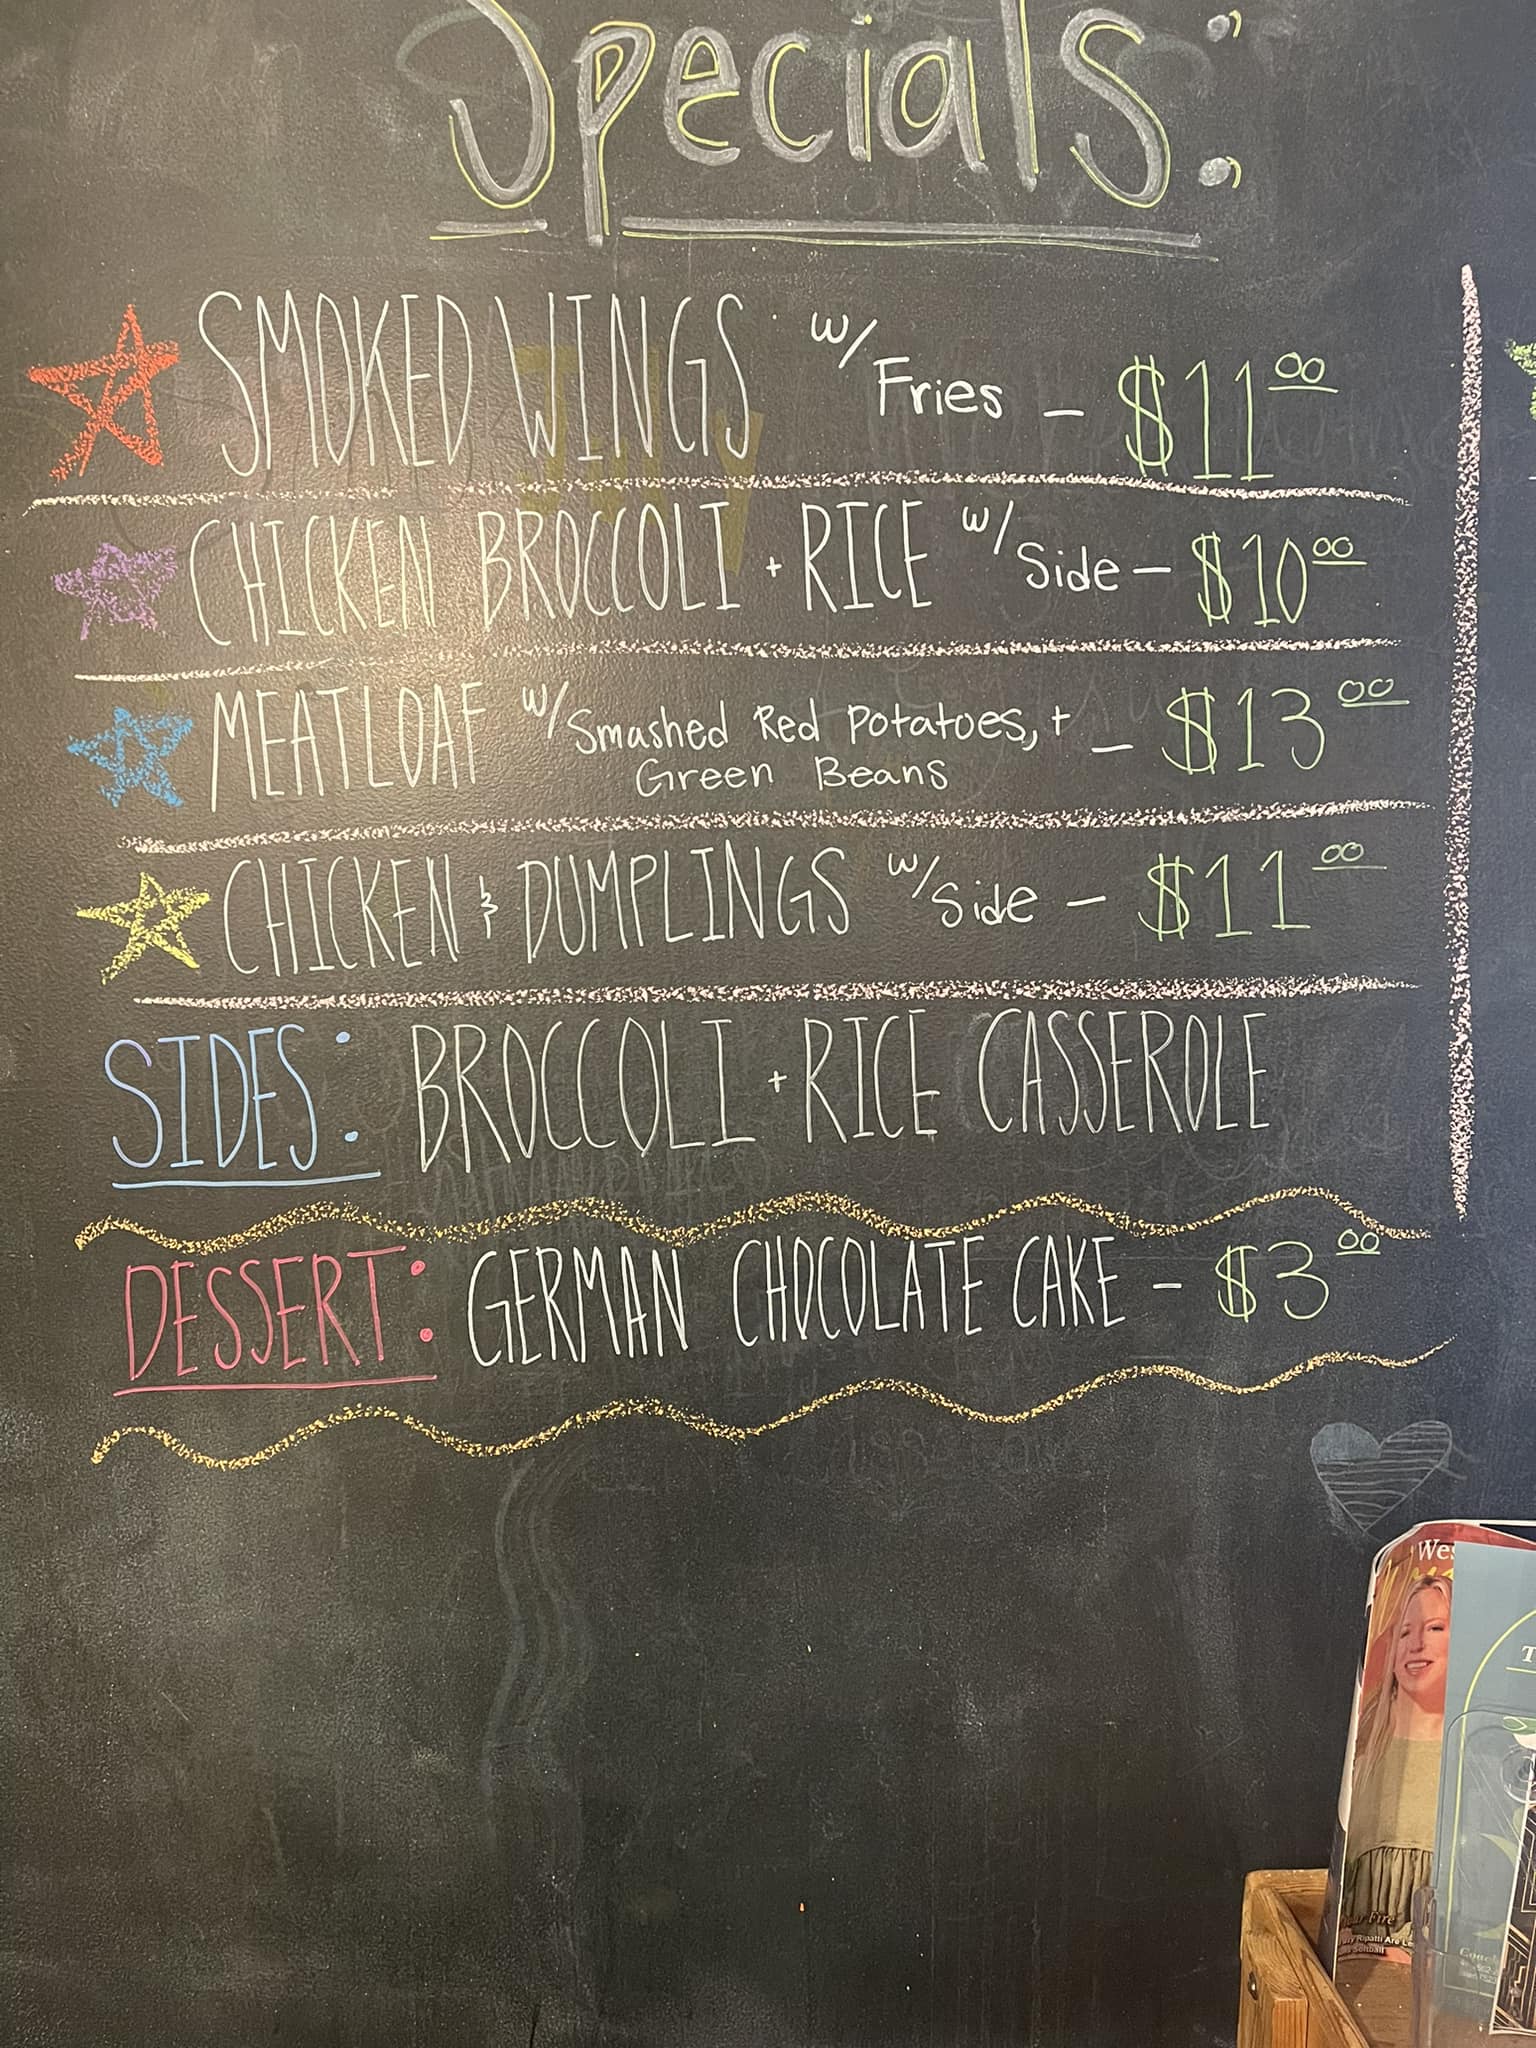 Specials:
SMOKED WINGS w/ Fries - $11.00
CHICKEN BROCCOLI + RICE w/ Side - $10.00
MEATLOAF w/ Smashed Red Potatoes, +
Green Beans - $13.00
CHICKEN & DUMPLINGS w/ Side - $11.00
SIDES: BROCCOLI + RICE CASSEROLE
DESSERT: GERMAN CHOCOLATE CAKE - $3.00
July
Wes
Fire
Ripatti Are
Softball